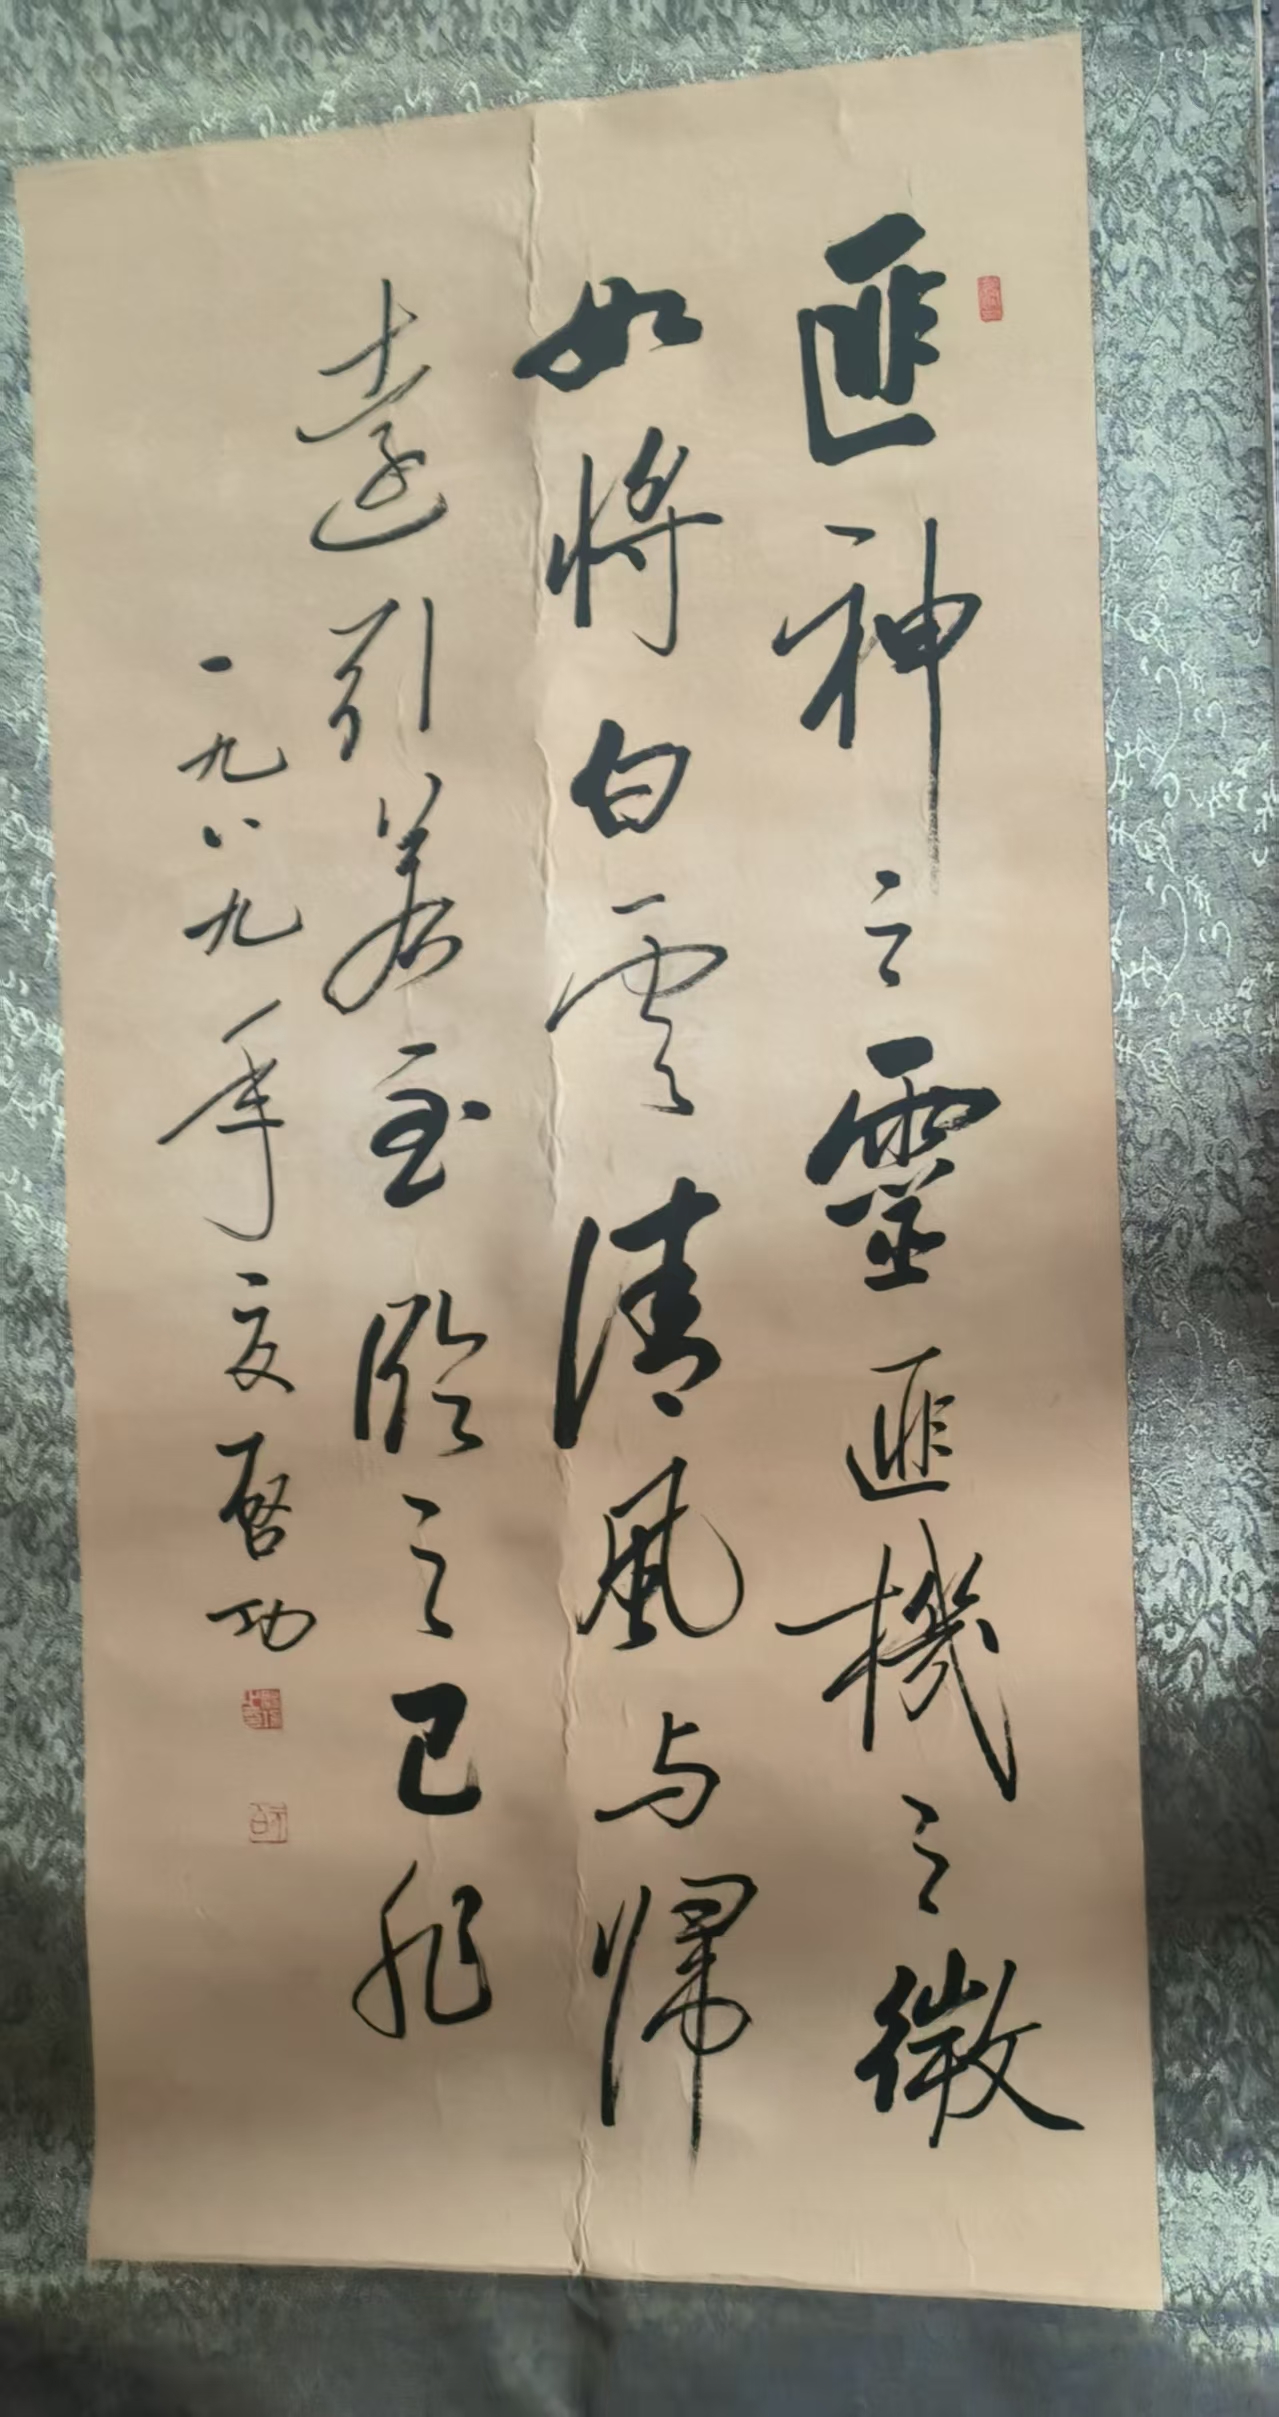 匪神之靈匪機之微
如將白雲清風与歸
遠引若至臨之已非
一九八九年夏啓功